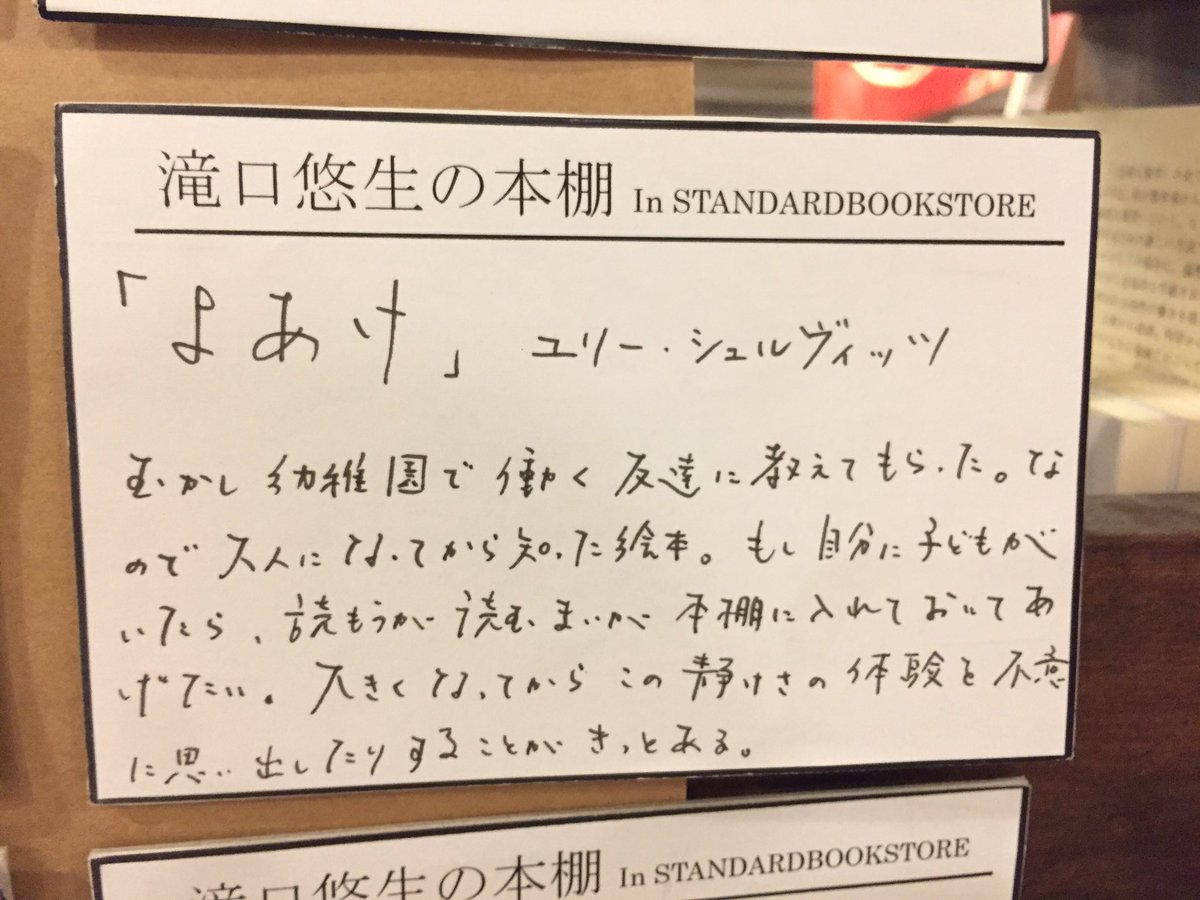 滝口悠生の本棚 In STANDARDBOOKSTORE
「よあけ」 ユリー・シュルヴィッツ
むかし幼稚園で働く友達に教えてもらった。な
ので大人になってから知った絵本。もし自分に子どもが
いたら、読もうが読むまいが本棚に入れておいてあ
げたい。大きくなってからこの静けさの体験を不意
に思い出したりすることがきっとある。
滝口悠生の本棚 In STANDARDBOOKSTORE